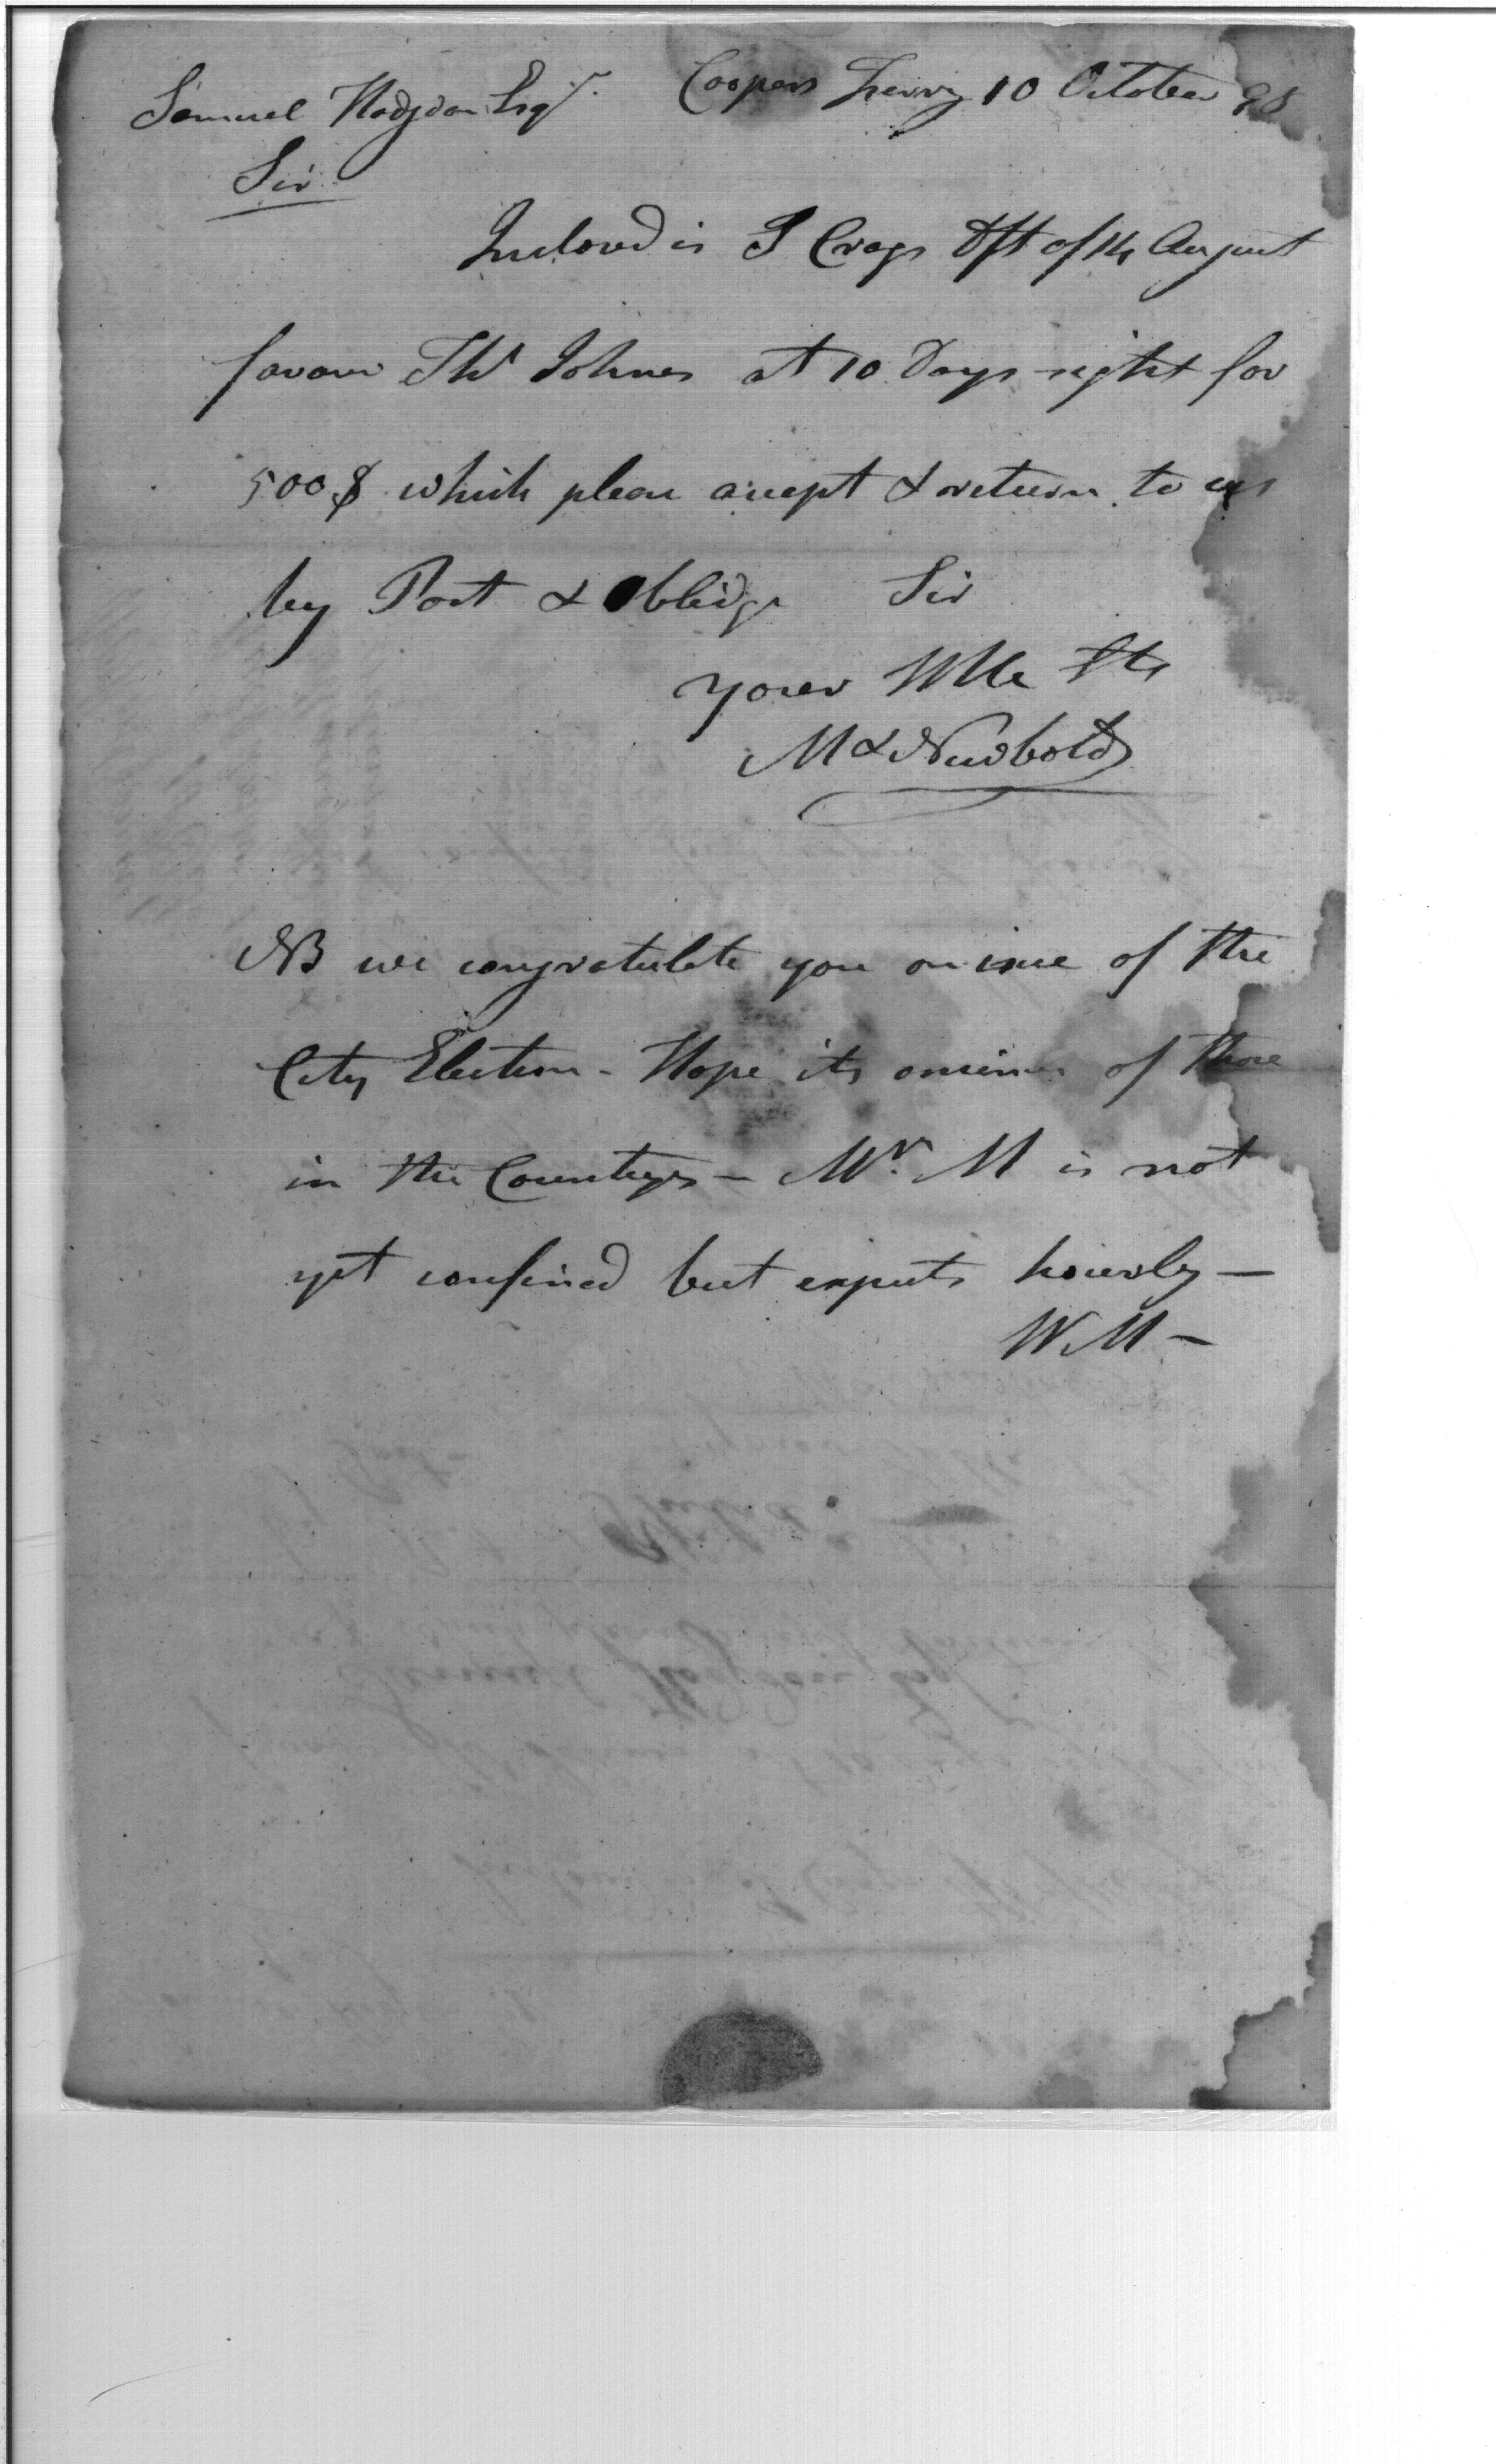 Samuel Hodgdon Esqr. Coopers Ferry 10 October 98
Sir
Inclosed is I Craigs Dft of 14 August
favour Thos Johnes at 10 Days sight for
500$ which please accept & return to us
by Post & Oblidge Sir
your Hble Sts
M & Newbold
NB we congratulate you on issue of the
City Election - Hope its omines of those
in the Countys - Mrs. M is not
yet confined but expects hourly -
WM -
Philada.
Samuel Hodgdon Esqr.